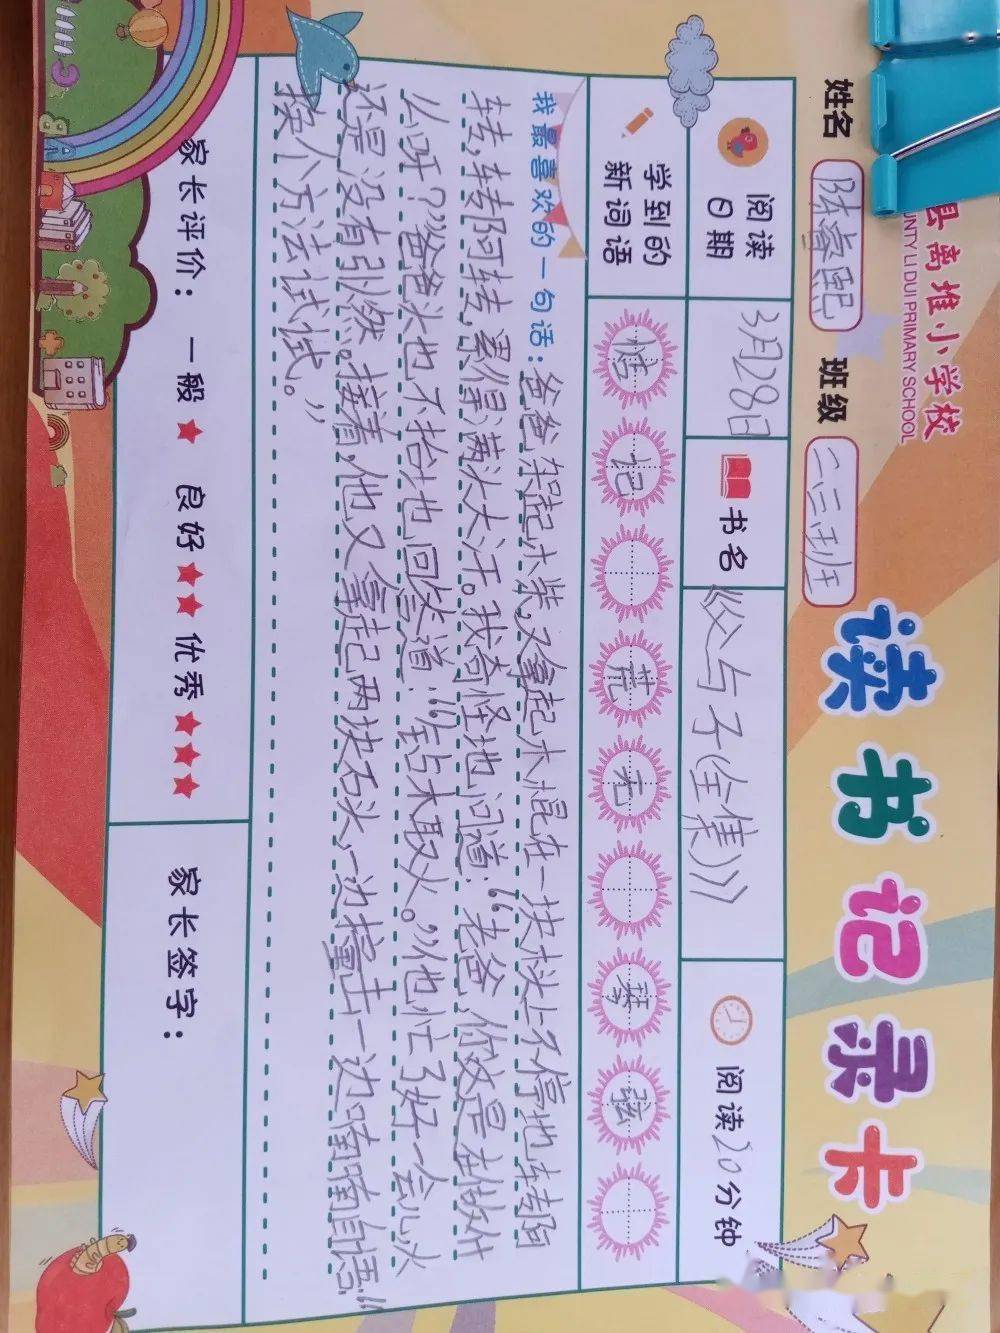 县离堆小学校
UNTY LI DUI PRIMARY SCHOOL
读书记录卡
姓名 陈睿熙 班级 二三班
阅读日期 3月28日 书名 《父与子(全集)》 阅读20分钟
学到的新词语 惦 记 荒 无 琴 弦
我最喜欢的一句话：爸爸架起木柴,又拿起木棍在一块木头上不停地转阿
转,转阿转,累得满头大汗。我奇怪地问道：“老爸,你这是在做什
么呀？”爸爸头也不抬地回答道：“钻木取火。”他忙了好一会儿,火
还是没有引燃。接着,他又拿起两块石头,一边撞击一边喃喃自语：“
换个方法试试。”
家长评价： 一般★ 良好★★ 优秀★★★ 家长签字：